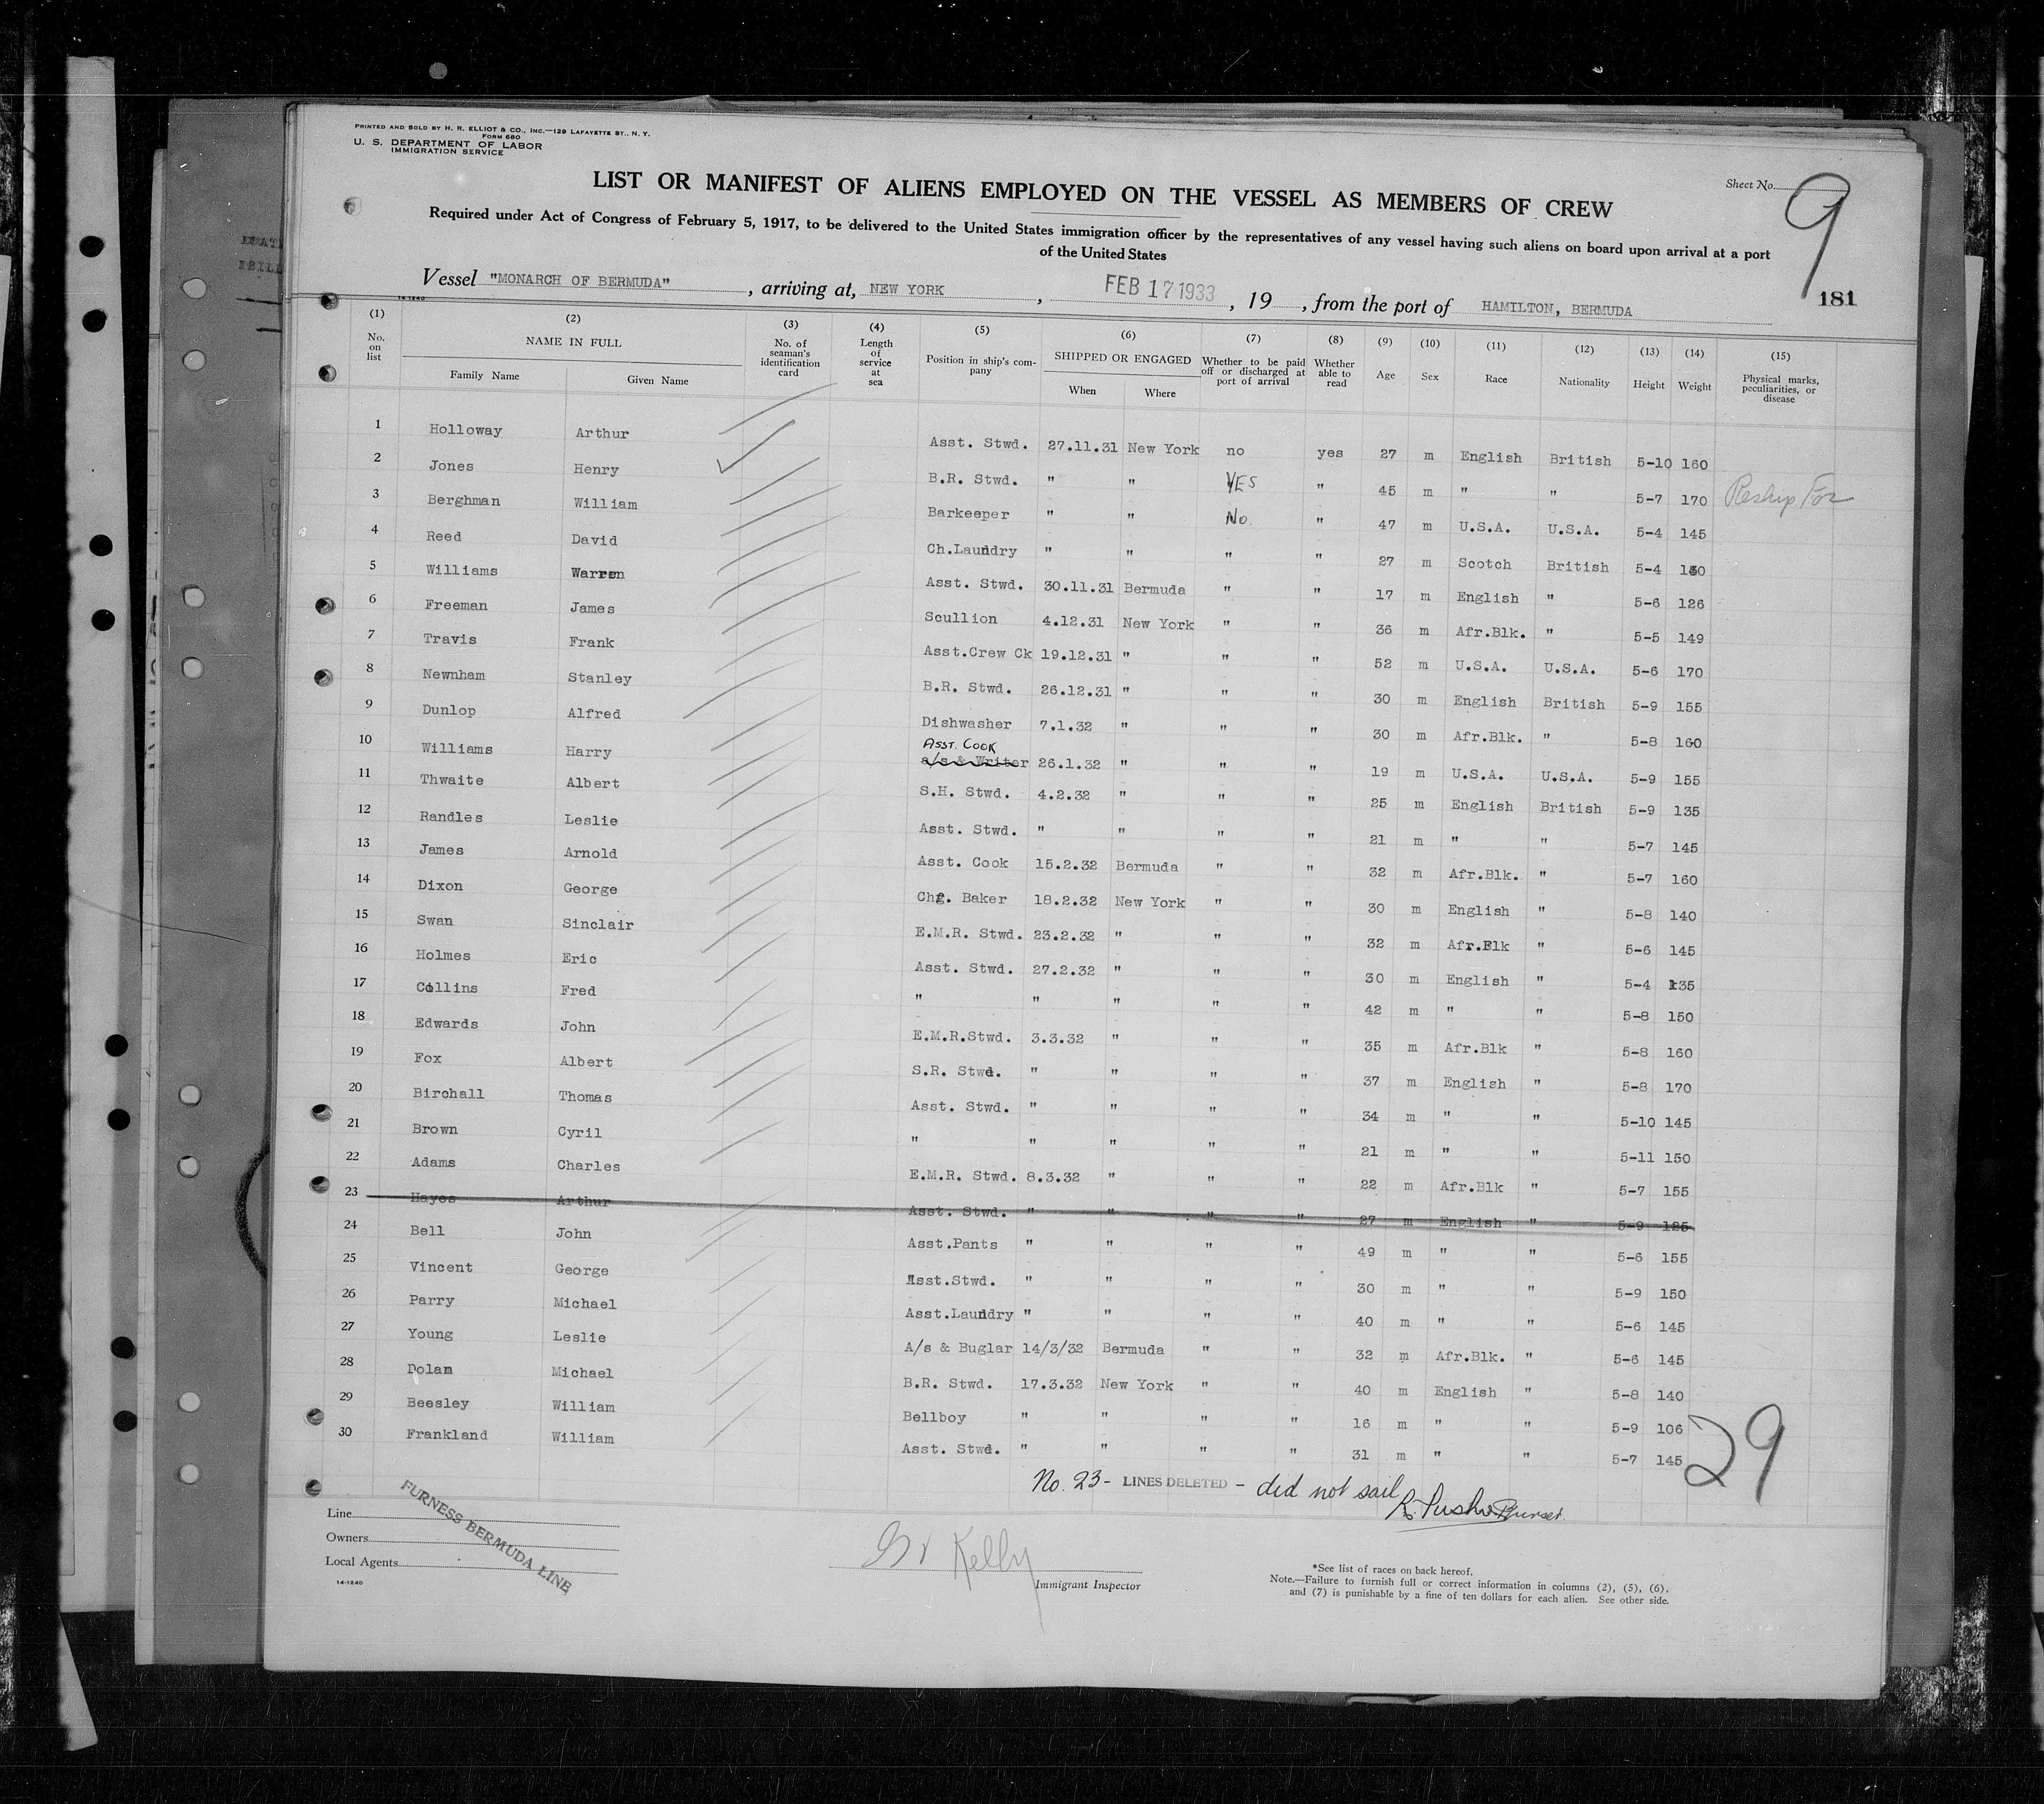 PRINTED AND SOLD BY H. R. ELLIOT & CO., INC.—129 LAFAYETTE ST., N. Y.
FORM 680
U. S. DEPARTMENT OF LABOR
IMMIGRATION SERVICE
Sheet No. 9
LIST OR MANIFEST OF ALIENS EMPLOYED ON THE VESSEL AS MEMBERS OF CREW
Required under Act of Congress of February 5, 1917, to be delivered to the United States immigration officer by the representatives of any vessel having such aliens on board upon arrival at a port
of the United States
Vessel "MONARCH OF BERMUDA", arriving at, NEW YORK, FEB 17 1933, 19, from the port of HAMILTON, BERMUDA
181
14-1240
(1) (2) (3) (4) (5) (6) (7) (8) (9) (10) (11) (12) (13) (14) (15)
No. on list NAME IN FULL Family Name Given Name No. of seaman's identification card Length of service at sea Position in ship's company SHIPPED OR ENGAGED When Where Whether to be paid off or discharged at port of arrival Whether able to read Age Sex Race Nationality Height Weight Physical marks, peculiarities, or disease
1 Holloway Arthur Asst. Stwd. 27.11.31 New York no yes 27 m English British 5-10 160
2 Jones Henry B.R. Stwd. " " YES " 45 m " " 5-7 170 Reship For
3 Berghman William Barkeeper " " No. " 47 m U.S.A. U.S.A. 5-4 145
4 Reed David Ch.Laundry " " " " 27 m Scotch British 5-4 130
5 Williams Warren Asst. Stwd. 30.11.31 Bermuda " " 17 m English " 5-6 126
6 Freeman James Scullion 4.12.31 New York " " 36 m Afr.Blk. " 5-5 149
7 Travis Frank Asst.Crew Ck 19.12.31 " " " 52 m U.S.A. U.S.A. 5-6 170
8 Newnham Stanley B.R. Stwd. 26.12.31 " " " 30 m English British 5-9 155
9 Dunlop Alfred Dishwasher 7.1.32 " " " 30 m Afr.Blk. " 5-8 160
ASST. COOK
10 Williams Harry a/s & Writer 26.1.32 " " " 19 m U.S.A. U.S.A. 5-9 155
11 Thwaite Albert S.H. Stwd. 4.2.32 " " " 25 m English British 5-9 135
12 Randles Leslie Asst. Stwd. " " " " 21 m " " 5-7 145
13 James Arnold Asst. Cook 15.2.32 Bermuda " " 32 m Afr.Blk. " 5-7 160
14 Dixon George Chf. Baker 18.2.32 New York " " 30 m English " 5-8 140
15 Swan Sinclair E.M.R. Stwd. 23.2.32 " " " 32 m Afr.Blk " 5-6 145
16 Holmes Eric Asst. Stwd. 27.2.32 " " " 30 m English " 5-4 135
17 Collins Fred " " " " " 42 m " " 5-8 150
18 Edwards John E.M.R.Stwd. 3.3.32 " " " 35 m Afr.Blk " 5-8 160
19 Fox Albert S.R. Stwd. " " " " 37 m English " 5-8 170
20 Birchall Thomas Asst. Stwd. " " " " 34 m " " 5-10 145
21 Brown Cyril " " " " " 21 m " " 5-11 150
22 Adams Charles E.M.R. Stwd. 8.3.32 " " " 22 m Afr.Blk " 5-7 155
23 Hayes Arthur Asst. Stwd. " " " " 27 m English " 5-9 125
24 Bell John Asst.Pants " " " " 49 m " " 5-6 155
25 Vincent George Asst.Stwd. " " " " 30 m " " 5-9 150
26 Parry Michael Asst.Laundry " " " " 40 m " " 5-6 145
27 Young Leslie A/s & Buglar 14/3/32 Bermuda " " 32 m Afr.Blk. " 5-6 145
28 Dolan Michael B.R. Stwd. 17.3.32 New York " " 40 m English " 5-8 140
29 Beesley William Bellboy " " " " 16 m " " 5-9 106
30 Frankland William Asst. Stwd. " " " " 31 m " " 5-7 145
29
No. 23 - LINES DELETED - did not sail
Purser
Line
Owners
Local Agents
FURNESS BERMUDA LINE
14-1240
Kelly
Immigrant Inspector
*See list of races on back hereof.
Note.—Failure to furnish full or correct information in columns (2), (5), (6),
and (7) is punishable by a fine of ten dollars for each alien. See other side.